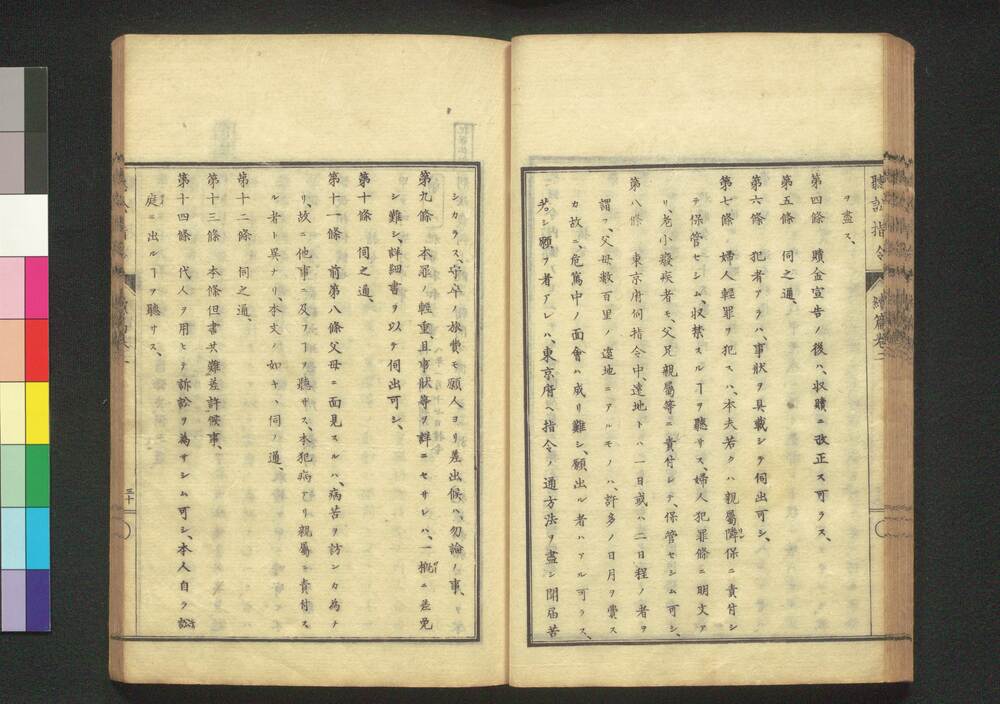 聽訟指令 續篇卷二
ヲ盡ス、
第四條 贖金宣告ノ後ハ、収贖ニ改正ス可ラス、
第五條 伺之通、
第六條 犯者アラハ、事狀ヲ具載シテ伺出可シ、
第七條 婦人輕罪ヲ犯スハ、本夫若クハ親屬隣保ニ責付シ
テ保管セシム、収禁スルヿヲ聽サス、婦人犯罪條ニ明文ア
リ、老小癈疾者モ、父兄親屬等ニ責付シテ、保管セシム可シ、
第八條 東京府伺指令中、遠地トハ、一日或ハ二日程ノ者ヲ
謂フ、父母數百里ノ遠地ニアルモノハ、許多ノ日月ヲ費ス
カ故ニ、危篤中ノ面會ハ成リ難シ、願出ル者ハアル可ラス、
若シ願フ者アレハ、東京府ヘ指令ノ通方法ヲ盡シ聞届苦
シカラス、守卒ノ旅費モ願人ヨリ差出候ハ、勿論ノ事、
第九條 本罪ノ輕重、且事狀等ヲ詳ニセサレハ、一概ニ差免
シ難シ、詳細書ヲ以テ伺出可シ、
第十條 伺之通、
第十一條 前第八條父母ニ面見スルハ、病苦ヲ訪ンカ為ナ
リ、故ニ他事ニ及フヿヲ聽サス、本犯病アリ親屬ニ責付ス
ル者ト異ナリ、本文ノ如キハ伺ノ通、
第十二條 伺之通、
第十三條 本條但書共難差許候事、
第十四條 代人ヲ用ヒテ訴訟ヲ為サシム可シ、本人自ラ訟
庭ニ出ルヿヲ聽サス、
三十